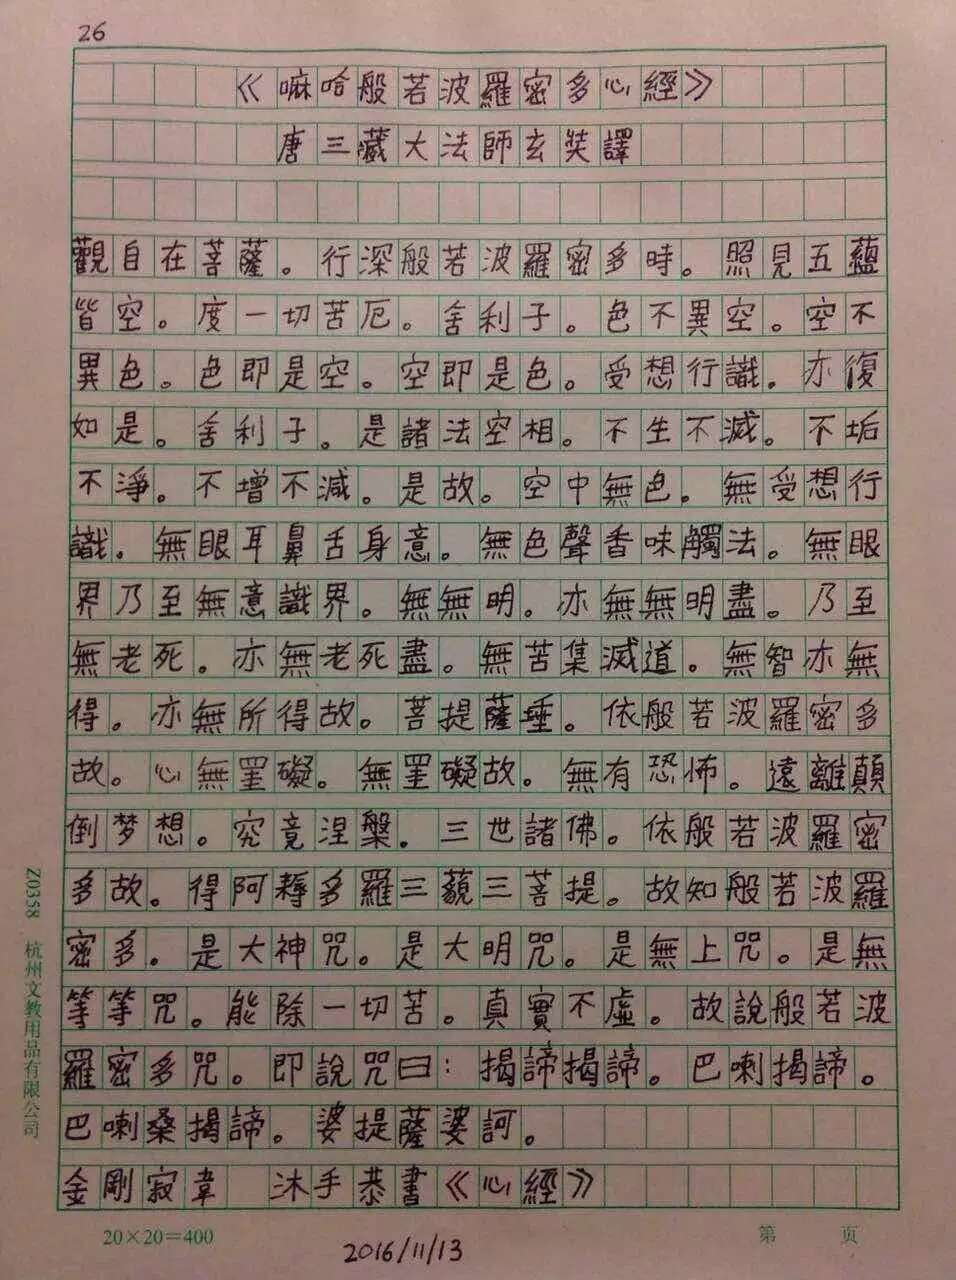 26
《嘛哈般若波羅密多心經》
唐三藏大法師玄奘譯
觀自在菩薩。行深般若波羅密多時。照見五蘊
皆空。度一切苦厄。舍利子。色不異空。空不
異色。色即是空。空即是色。受想行識。亦復
如是。舍利子。是諸法空相。不生不滅。不垢
不淨。不增不減。是故。空中無色。無受想行
識。無眼耳鼻舌身意。無色聲香味觸法。無眼
界乃至無意識界。無無明。亦無無明盡。乃至
無老死。亦無老死盡。無苦集滅道。無智亦無
得。亦無所得故。菩提薩埵。依般若波羅密多
故。心無罣礙。無罣礙故。無有恐怖。遠離顛
倒梦想。究竟涅槃。三世諸佛。依般若波羅密
多故。得阿耨多羅三藐三菩提。故知般若波羅
密多。是大神咒。是大明咒。是無上咒。是無
等等咒。能除一切苦。真實不虛。故說般若波
羅密多咒。即說咒曰：揭諦揭諦。巴喇揭諦。
巴喇桑揭諦。婆提薩婆訶。
金剛寂韋 沐手恭書《心經》
20×20=400
第 页
2016/11/13
Z0358 杭州文教用品有限公司